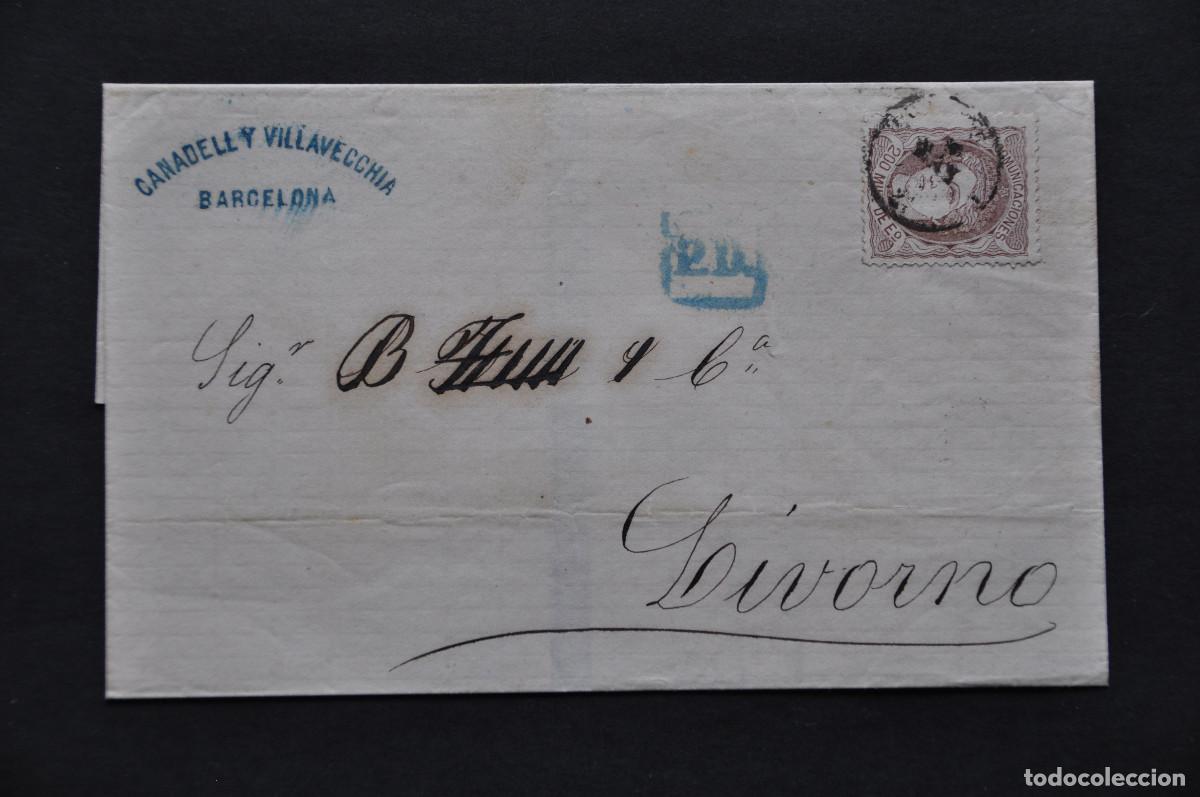 CANADELL Y VILLAVECCHIA
BARCELONA
COMUNICACIONES
200 MS DE Eº
P.D.
Sigr B & Cª
Livorno
todocoleccion